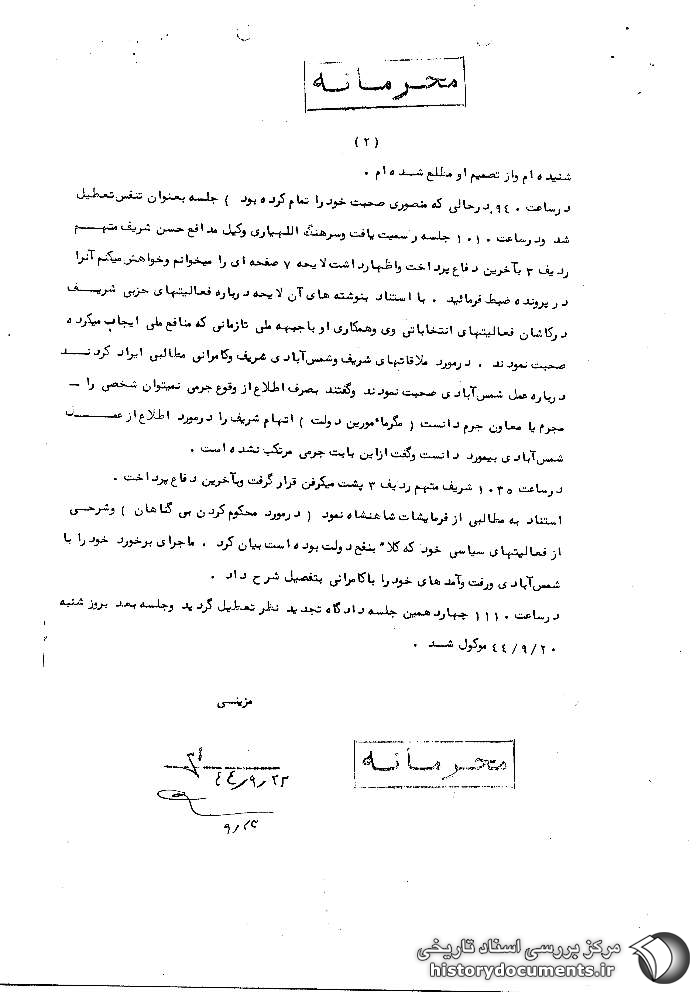 محرمانه
(۲)
شنیده ام واز تصمیم او مطلع شده ام .
درساعت ۹٤۰ درحالی که منصوری صحبت خود را تمام کرده بود ) جلسه بعنوان تنفس تعطیل
شد ودرساعت ۱۰۱۰ جلسه رسمیت یافت وسرهنگ اللهیاری وکیل مدافع حسن شریف متهم
ردیف ۳ بآخرین دفاع پرداخت واظهارداشت لایحه ۷ صفحه ای را میخوانم وخواهش میکنم آنرا
در پرونده ضبط فرمائید . با استناد بنوشته های آن لایحه درباره فعالیتهای حزبی شریف
درکاشان فعالیتهای انتخاباتی وی وهمکاری او باجبهه ملی تازمانی که منافع ملی ایجاب میکرده
صحبت نمودند . درمورد ملاقاتهای شریف وشمس‌آبادی شریف وکامرانی مطالبی ایراد کردند
درباره عمل شمس‌آبادی صحبت نمودند وگفتند بصرف اطلاع از وقوع جرمی نمیتوان شخصی را –
مجرم یا معاون جرم دانست ( مگرمأمورین دولت ) اتهام شریف را درمورد اطلاع از عمل
شمس‌آبادی بیمورد دانست وگفت ازاین بابت جرمی مرتکب نشده است .
درساعت ۱۰۳۵ شریف متهم ردیف ۳ پشت میکرفن قرار گرفت وبآخرین دفاع پرداخت .
استناد به مطالبی از فرمایشات شاهنشاه نمود ( درمورد محکوم کردن بی گناهان ) وشرحی
از فعالیتهای سیاسی خود که کلاً بنفع دولت بوده است بیان کرد . ماجرای برخورد خود را با
شمس‌آبادی ورفت وآمدهای خودرا باکامرانی بتفصیل شرح داد .
درساعت ۱۱۱۰ چهاردهمین جلسه دادگاه تجدید نظر تعطیل گردید وجلسه بعد بروز شنبه
٤٤/۹/۲۰ موکول شد .
مزینی
محرمانه
٤٤/۹/۲۲
مرکز بررسی اسناد تاریخی
historydocuments.ir